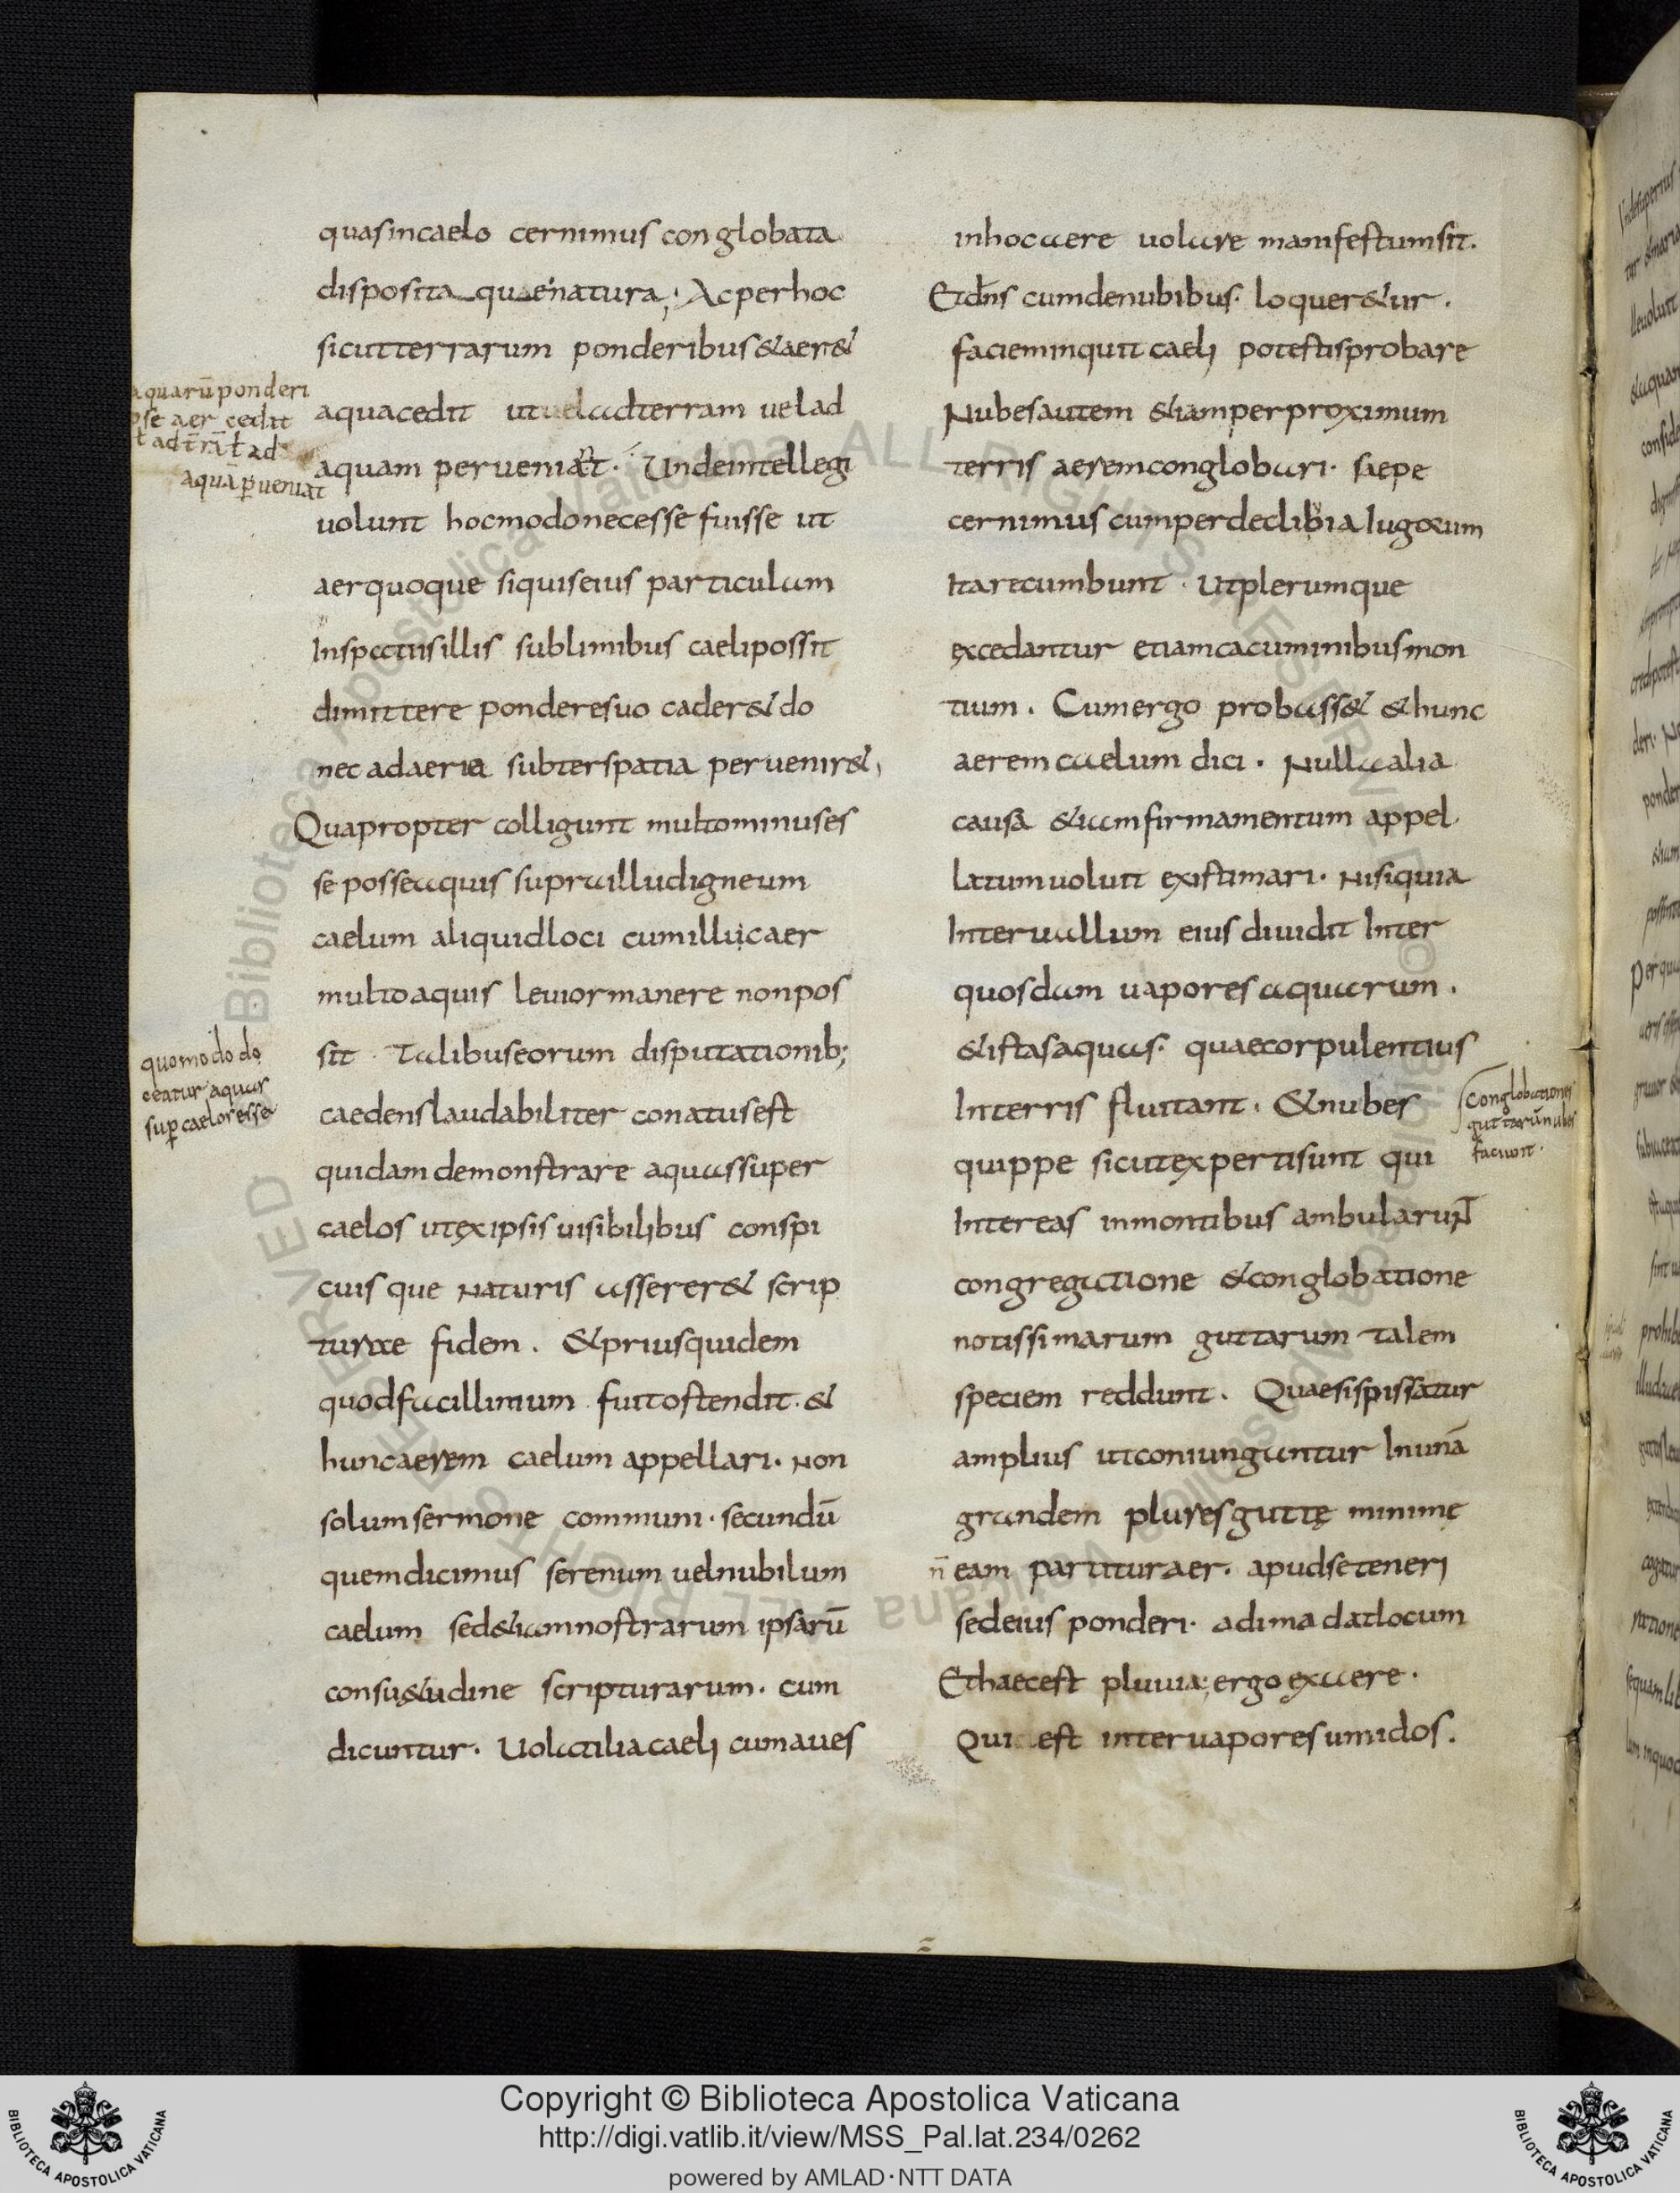 quasincaelo cernimus conglobata
disposita quaenatura; Acperhoc
sicutterrarum ponderibus&aer&
aquacedit utueladterram uelad
aquam perueniat. Undeintellegi
uolunt hocmodonecessefuisse ut
aerquoque siquiseius particulam
Inspatiisillis sublimibus caelipossit
dimittere ponderesuo cader&do
nec adaeria subterspatia peruenir&,
Quapropter colligunt multominuses
se posseaquis suprailludigneum
caelum aliquidloci cumillucaer
multoaquis leuiormanere nonpos
sit. Talibuseorum disputationib;
caedenslaudabiliter conatusest
quidamdemonstrare aquassuper
caelos utexipsisuisibilibus conspi
cuisque Naturis asserer& scrip
turae fidem. &priusquidem
quodfacillimum fuitostendit. &
huncaerem caelum appellari. Non
solumsermone communi. secundū
quemdicimus serenum uelnubilum
caelum sed&iamnostrarum ipsarū
consu&udine scripturarum. cum
dicuntur. Uolatiliacaeli cumaues
aquarū ponderi
pse aer cedit
ł ad tr̄ā ł ad
aquā ꝑueniat
quomodo do
ceatur aquas
suꝑ caelos esse
inhocaere uolare manifestumsit.
Etdn̄s cumdenubibus. loquer&ur.
facieminquit caeli potestisprobare
Nubesautem &iamperproximum
terris aeremconglobari. saepe
cernimus cumperdeclibia lugorum
Itarecumbunt. Utplerumque
excedantur etiamcacuminibusmon
tium. Cumergo probass& &hunc
aerem caelum dici. Nullaalia
causa &iamfirmamentum appel
latumuoluit existimari. Nisiquia
Interuallum eius diuidit Inter
quosdam uapores aquarum.
&istasaquas. quaecorpulentius
Interris fluitant. &nubes
quippe sicutexpertisunt qui
Intereas inmontibus ambularunt
congregatione &conglobatione
notissimarum guttarum talem
speciem reddunt. Quaesispissatur
amplius utconiunguntur Inunā
grandem pluresguttę minimę
n̄ eam partituraer. apudseteneri
sedeius ponderi. adima datlocum
Ethaecest pluuia; ergo exaere.
Qui est interuaporesumidos.
Conglobationes
guttarū nubes
faciunt.
Copyright © Biblioteca Apostolica Vaticana
http://digi.vatlib.it/view/MSS_Pal.lat.234/0262
powered by AMLAD·NTT DATA
BIBLIOTECA APOSTOLICA VATICANA
BIBLIOTECA APOSTOLICA VATICANA